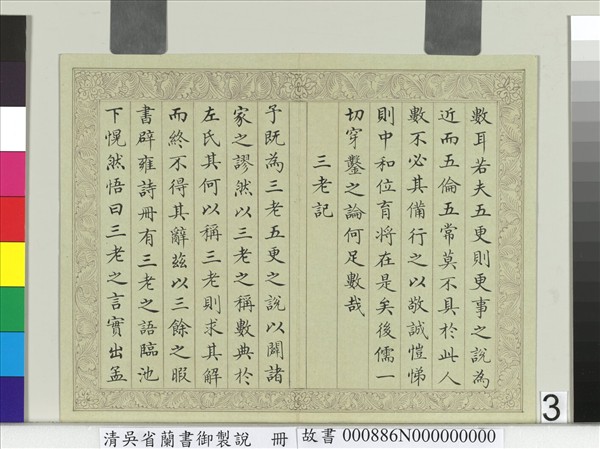 數耳若夫五更則更事之說為
近而五倫五常莫不具於此人
數不必其備行之以敬誠愷悌
則中和位育將在是矣後儒一
切穿鑿之論何足數哉
三老記
予既為三老五更之說以闢諸
家之謬然以三老之稱數典於
左氏其何以稱三老則求其解
而終不得其辭茲以三餘之暇
書辟雍詩冊有三老之語臨池
下愰然悟曰三老之言實出孟
3
清吳省蘭書御製說 冊
故書 000886N000000000